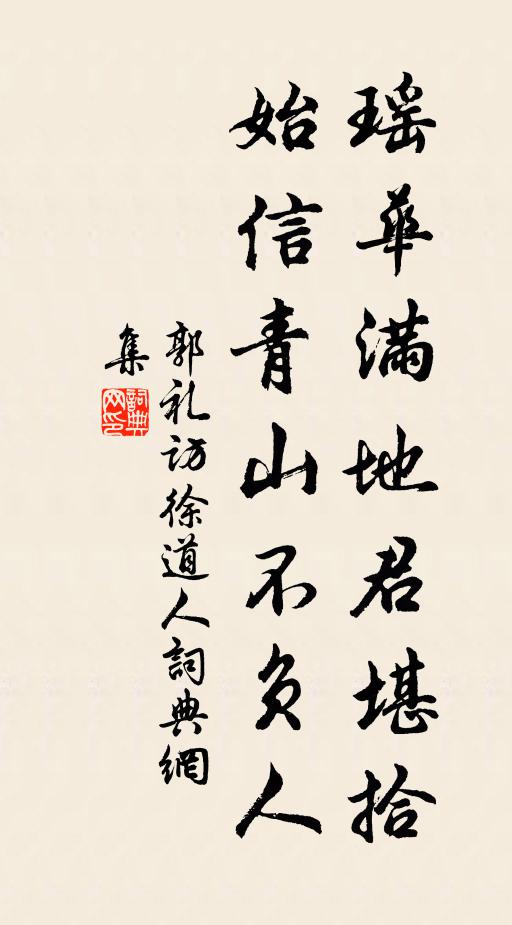 瑶華满地君堪拾
始信青山不负人
郭礼访徐道人詞典網
集
詞典
网印